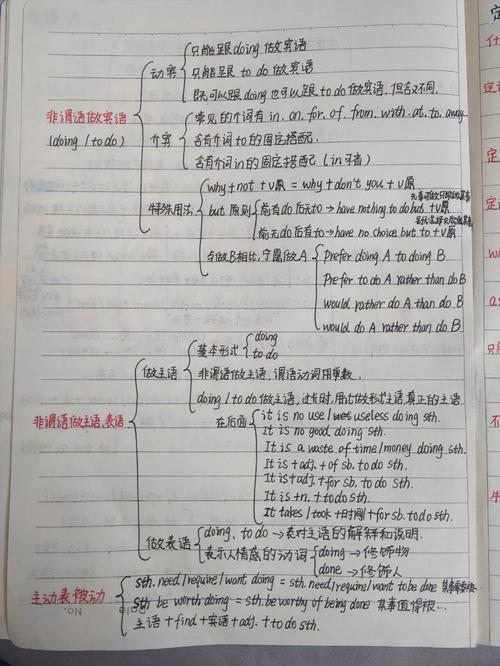 只能跟doing做宾语
动宾 只能跟 to do 做宾语
既可以跟doing也可以跟to do做宾语,但含义不同.
非谓语做宾语
(doing / to do)
介宾 常见的介词有in.on.for.of.from.with.at.to.away
含有介词to的固定搭配.
含有介词in的固定搭配(in可省)
特殊用法 why+not+v原 = why+don't you+v原
but原则 前有do后无to→have nothing to do but +v原
前无do后有to→have no choice but to +v原
与做B相比,宁愿做A prefer doing A to doing B
Prefer to do A rather than do B
would rather do A than do B
would do A rather than do B
做主语 基本形式 doing
to do
非谓语做主语,谓语动词用单数.
doing / to do做主语,过长时,用it做形式主语,真正的主语
在后面
非谓语做主语.表语
it is no use / useless doing sth.
It is no good doing sth.
It is a waste of time/money doing sth.
It is+adj.+of sb. to do sth.
It is+adj.+for sb. to do sth.
It is+n.+to do sth.
It takes / took+时间+for sb. to do sth
做表语 doing、to do→表对主语的解释和说明.
表示人情感的动词 doing→修饰物
done→修饰人
主动表被动 sth. need/require/want doing = sth. need/require/want to be done
sth be worth doing = sth. be worthy of being done 某事值得被……
主语+find+宾语+adj.+to do sth.
No.